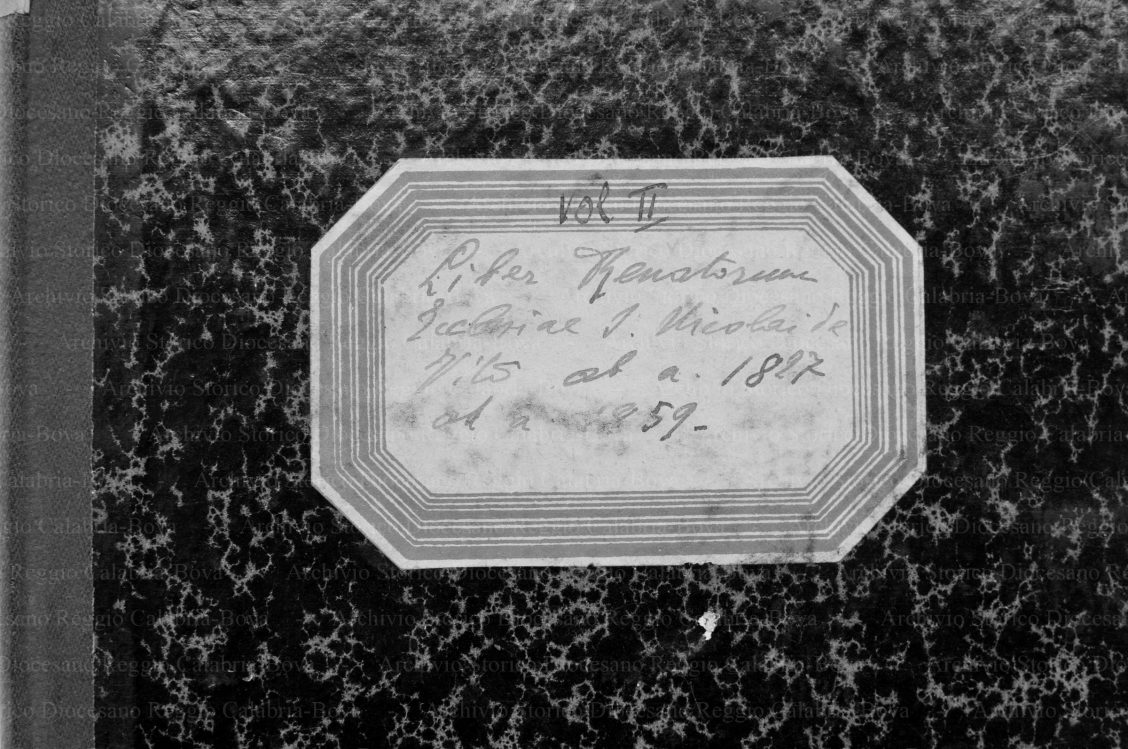 vol II
Liber Renatorum
Ecclesiae S. Nicolai de
Vito ab a. 1827
ad a. 1859-
Archivio Storico Diocesano Reggio Calabria-Bova